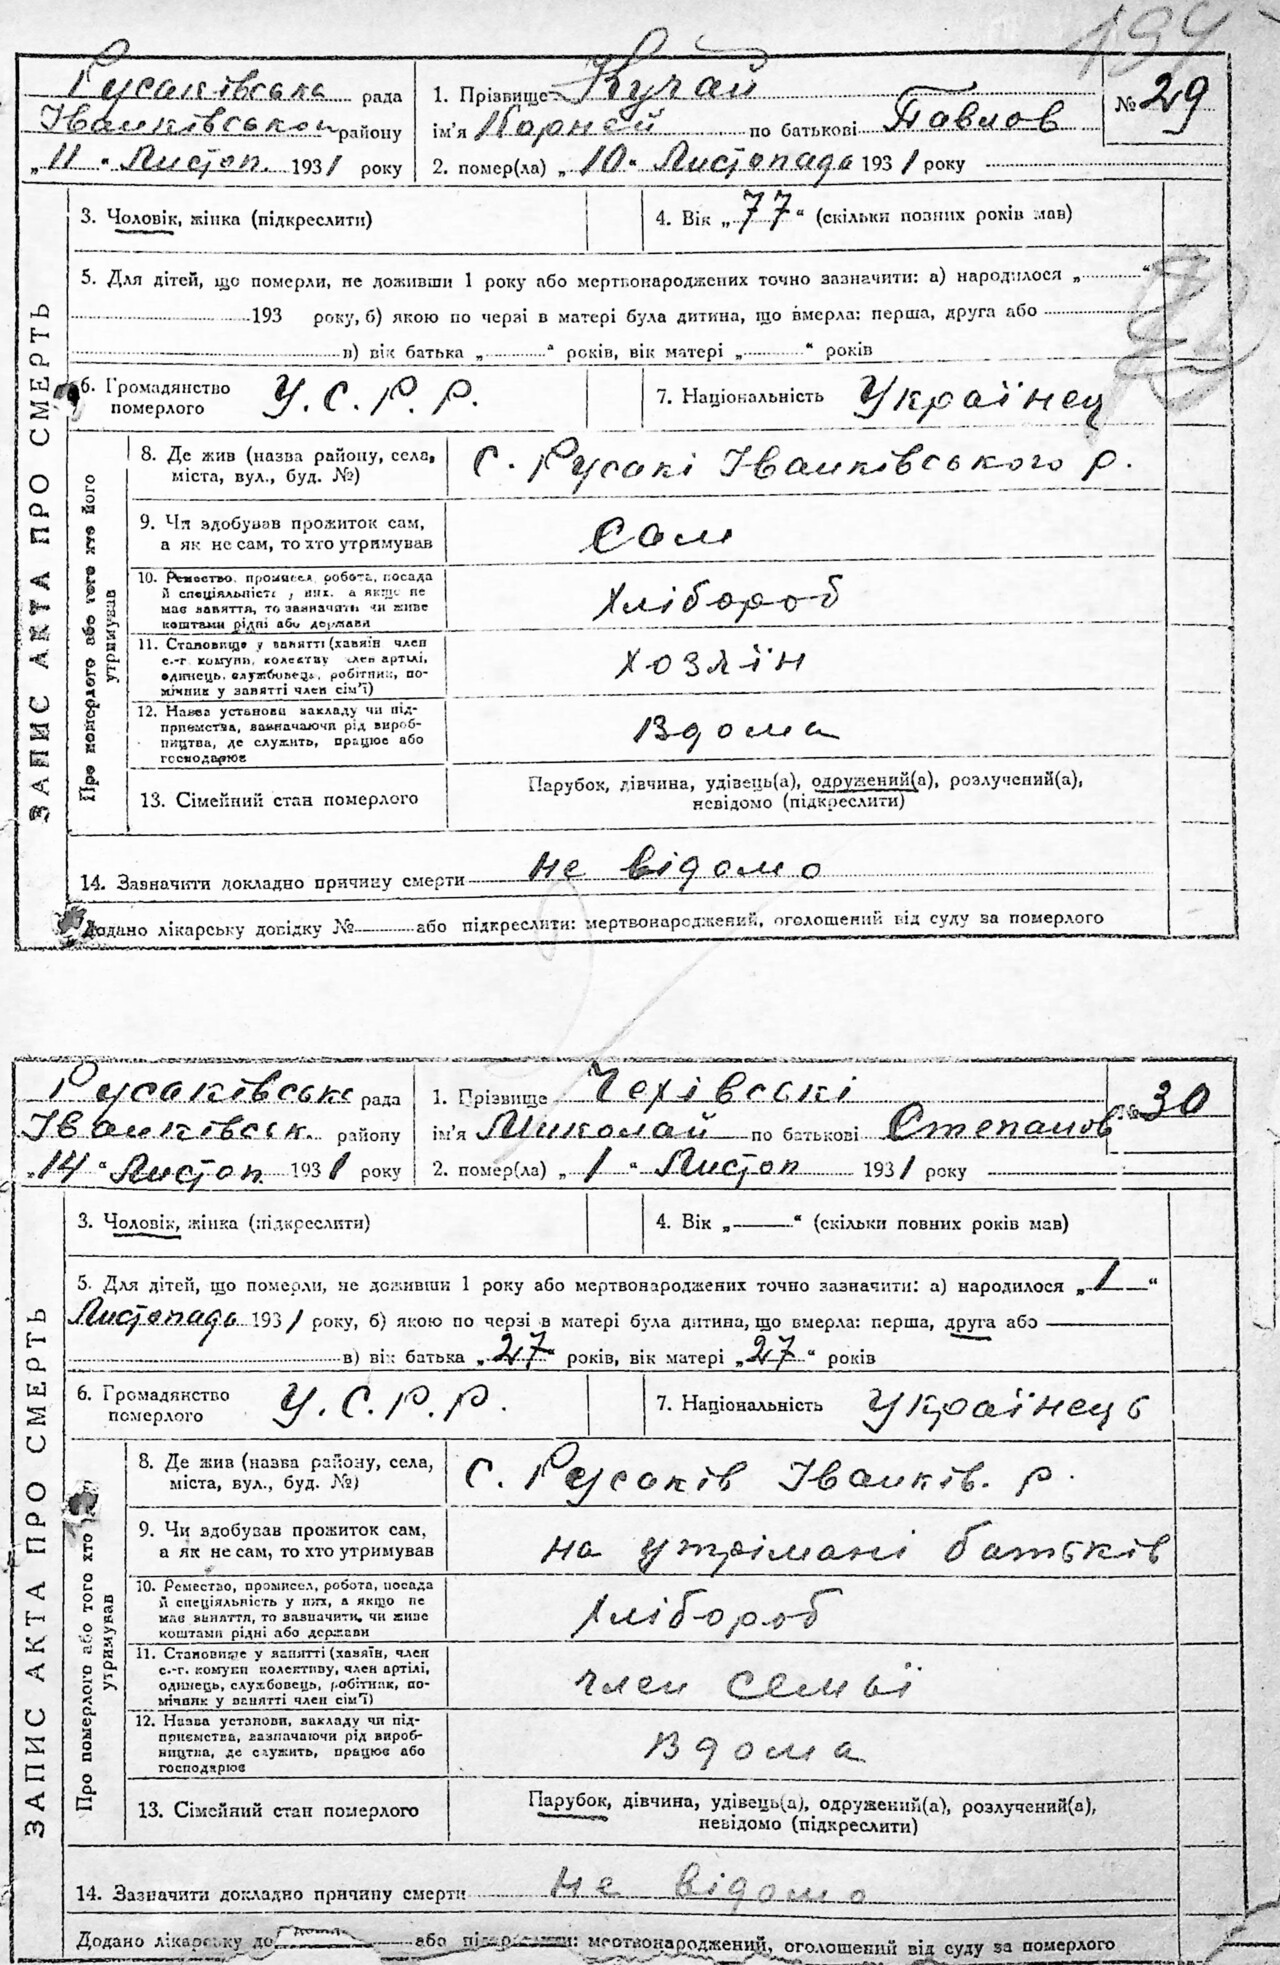 194
Русаківська рада
Іванківського району
„11“ Листоп. 1931 року
1. Прізвище Кучай
ім'я Корней по батькові Павлов
2. помер(ла) „10“ Листопада 1931 року
№ 29
3. Чоловік, жінка (підкреслити)
4. Вік „77“ (скільки повних років мав)
5. Для дітей, що померли, не доживши 1 року або мертвонароджених точно зазначити: а) народилося „ “
193 року, б) якою по черзі в матері була дитина, що вмерла: перша, друга або
в) вік батька „ “ років, вік матері „ “ років
6. Громадянство
померлого
У.С.Р.Р.
7. Національність Українец
ЗАПИС АКТА ПРО СМЕРТЬ
Про померлого або того хто його
утримував
8. Де жив (назва району, села,
міста, вул., буд. №)
С. Русакі Іванківського р.
9. Чи здобував прожиток сам,
а як не сам, то хто утримував
Сам
10. Ремество, промисел, робота, посада
й спеціяльність у них, а якщо не
має заняття, то зазначити чи живе
коштами рідні або держави
Хлібороб
11. Становище у занятті (хазяїн член
с.-г. комуни, колективу член артілі,
одинець, службовець, робітник, по-
мічник у занятті член сім'ї)
Хозяїн
12. Назва установи закладу чи під-
приємства, зазначаючи рід вироб-
ництва, де служить, працює або
господарює
Вдома
13. Сімейний стан померлого
Парубок, дівчина, удівець(а), одружений(а), розлучений(а),
невідомо (підкреслити)
14. Зазначити докладно причину смерти не відомо
Додано лікарську довідку № або підкреслити: мертвонароджений, оголошений від суду за померлого
Русаківська рада
Іванківськ. району
„14“ Листоп. 1931 року
1. Прізвище Чехівські
ім'я Миколай по батькові Степанов
2. помер(ла) „1“ Листоп 1931 року
№ 30
3. Чоловік, жінка (підкреслити)
4. Вік „—“ (скільки повних років мав)
5. Для дітей, що померли, не доживши 1 року або мертвонароджених точно зазначити: а) народилося „1“
Листопада 1931 року, б) якою по черзі в матері була дитина, що вмерла: перша, друга або
в) вік батька „27“ років, вік матері „27“ років
6. Громадянство
померлого
У.С.Р.Р.
7. Національність Українець
ЗАПИС АКТА ПРО СМЕРТЬ
Про померлого або того хто
утримував
8. Де жив (назва району, села,
міста, вул., буд. №)
С. Русаків Іванків. р.
9. Чи здобував прожиток сам,
а як не сам, то хто утримував
на утрімані батьків
10. Ремество, промисел, робота, посада
й спеціяльність у них, а якщо не
має заняття, то зазначити, чи живе
коштами рідні або держави
Хлібороб
11. Становище у занятті (хазяїн, член
с.-г. комуни колективу, член артілі,
одинець, службовець, робітник, по-
мічник у занятті член сім'ї)
член семьї
12. Назва установи, закладу чи під-
приємства, зазначаючи рід вироб-
ництва, де служить, працює або
господарює
Вдома
13. Сімейний стан померлого
Парубок, дівчина, удівець(а), одружений(а), розлучений(а),
невідомо (підкреслити)
14. Зазначити докладно причину смерти не відомо
Додано лікарську до або підкреслити: мертвонароджений, оголошений від суду за померлого